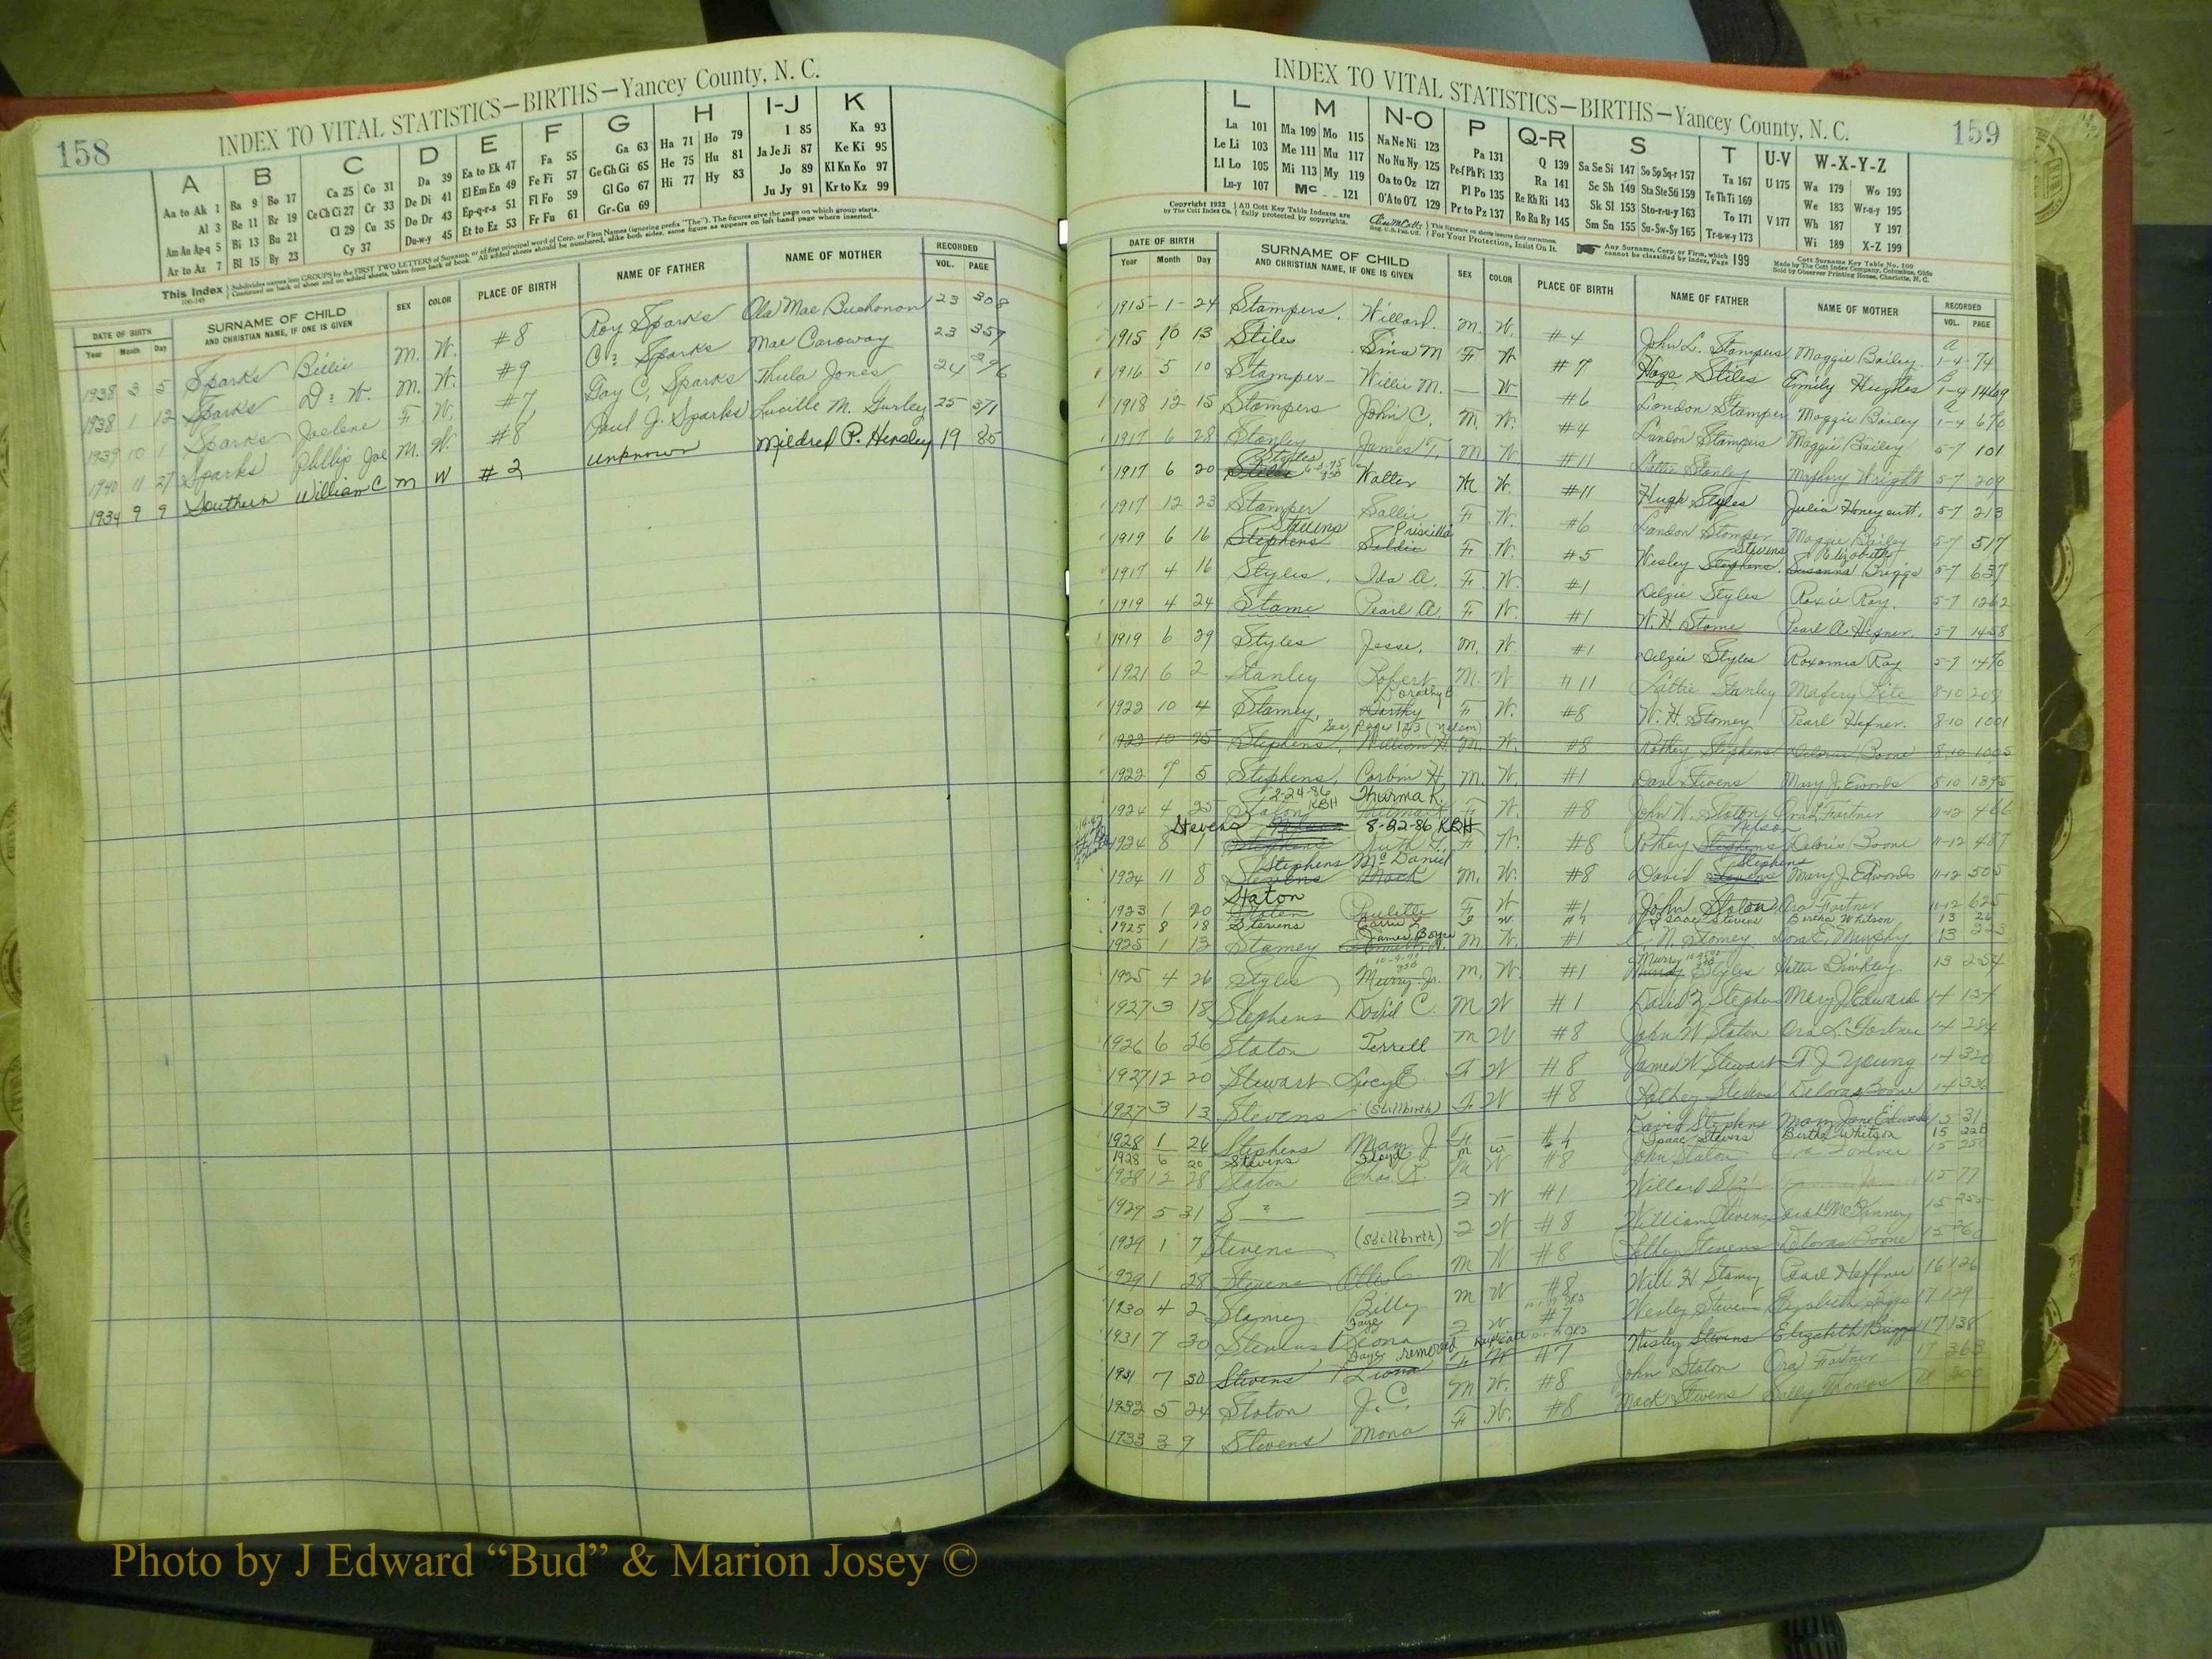 158
INDEX TO VITAL STATISTICS—BIRTHS—Yancey County, N. C.
A B C D E F G H I-J K
Aa to Ak 1 Ba 9 Bo 17 Ca 25 Co 31 Da 39 Ea to Ek 47 Fa 55 Ga 63 Ha 71 Ho 79 I 85 Ka 93
Al 3 Be 11 Br 19 Ce Ch Ci 27 Cr 33 De Di 41 El Em En 49 Fe Fi 57 Ge Gh Gi 65 He 75 Hu 81 Ja Je Ji 87 Ke Ki 95
Am An Ap-q 5 Bi 13 Bu 21 Cl 29 Cu 35 Do Dr 43 Ep-q-r-s 51 Fl Fo 59 Gl Go 67 Hi 77 Hy 83 Jo 89 Kl Kn Ko 97
Ar to Az 7 Bl 15 By 23 Cy 37 Du-w-y 45 Et to Ez 53 Fr Fu 61 Gr-Gu 69 Ju Jy 91 Kr to Kz 99
DATE OF BIRTH SURNAME OF CHILD SEX COLOR PLACE OF BIRTH NAME OF FATHER NAME OF MOTHER RECORDED
Year Month Day AND CHRISTIAN NAME, IF ONE IS GIVEN VOL. PAGE
1938 3 5 Sparks Billie M. W. #8 Roy Sparks Ola Mae Buchanan 23 308
1938 1 12 Sparks D. W. M. W. #9 Sparks Mae Caroway 23 357
1939 10 1 Sparks Joelene F. W. #7 Gay C. Sparks Thula Jones 24 296
1940 11 27 Sparks Phillip Joe M. W. #8 Paul J. Sparks Lucille M. Gurley 25 371
1934 9 9 Southern William C M W #2 unknown Mildred P. Hensley 19 85
159
INDEX TO VITAL STATISTICS—BIRTHS—Yancey County, N. C.
L M N-O P Q-R S T U-V W-X-Y-Z
La 101 Ma 109 Mo 115 Na Ne Ni 123 Pa 131 Q 139 Sa Se Si 147 So Sp Sq-r 157 Ta 167 U 175 Wa 179 Wo 193
Le Li 103 Me 111 Mu 117 No Nu Ny 125 Pe Pf Ph Pi 133 Ra 141 Sc Sh 149 Sta Ste Sti 159 Te Th Ti 169 We 183 Wr-u-y 195
Ll Lo 105 Mi 113 My 119 Oa to Oz 127 Pl Po 135 Re Rh Ri 143 Sk Sl 153 Sto-r-u-y 163 To 171 V 177 Wh 187 Y 197
Lu-y 107 Mc 121 O'A to O'Z 129 Pr to Pz 137 Ro Ru Ry 145 Sm Sn 155 Su-Sw-Sy 165 Tr-u-w-y 173 Wi 189 X-Z 199
DATE OF BIRTH SURNAME OF CHILD SEX COLOR PLACE OF BIRTH NAME OF FATHER NAME OF MOTHER RECORDED
Year Month Day AND CHRISTIAN NAME, IF ONE IS GIVEN VOL. PAGE
1915 1 24 Stampers, Willard. M. W. #4 John L. Stampers Maggie Bailey 1-4 74
1915 10 13 Stiles Sina M F W #7 Hoge Stiles Emily Hughes 1-4 1469
1916 5 10 Stamper Willie M. — W #6 London Stamper Maggie Bailey 1-4 670
1918 12 15 Stampers John C. M. W. #4 Landon Stampers Maggie Bailey 5-7 101
1917 6 28 Stanley James T. M W. #11 Lattie Stanley Wright 5-7 209
1917 6 20 Styles Walter M W. #11 Hugh Styles Julia Honeycutt. 5-7 213
1917 12 23 Stamper Sallie F W. #6 Landon Stamper Maggie Bailey 5-7 517
1919 6 16 Stephens Stevens Goldie Priscilla F W. #5 Wesley Stephens Stevens Susanna Elizabeth Briggs 5-7 637
1917 4 16 Styles, Ida A. F W. #1 Delzie Styles Roxie Ray. 5-7 1262
1919 4 24 Stame Pearl A. F W. #1 W. H. Stame Pearl A. Hefner. 5-7 1458
1919 6 29 Styles Jesse. M. W. #1 Delzie Styles Roxanna Ray 5-7 1470
1921 6 2 Stanley Robert M. W #11 Lattie Stanley 8-10 209
1922 10 4 Stamey, Dorthy Dorathy B F W. #8 W. H. Stamey Pearl Hefner. 8-10 1001
See page 143 (Nelson)
1922 10 25 Stephens, William H. M. W. #8 Rothey Stephens Boone 8-10 1005
1922 7 5 Stephens, Corbin H. M. W. #1 Dave Stevens Mary J. Edwards 8-10 1395
1924 4 25 Staton 2-24-86 KBH Thurma K. F W. #8 John W. Staton Ora L. Fortner 11-12 466
1924 8 1 Stevens 8-22-86 KBH Ruth F W. #8 Rothey Stephens Nelson Deloris Boone 11-12 487
1924 11 8 Stevens Stephens Mack McDaniel M. W. #8 David Stevens Stephens Mary J. Edwards 11-12 505
1923 1 20 Staton Paulette F W #1 John Staton Ora Fortner 11-12 625
1925 8 18 Stevens Carrie L F W. #7 Isaac Stevens Bertha Whitson 13 26
1925 1 13 Stamey James Boyce M W. #1 N. Stamey Dora E. Murphy 13
1925 4 26 Styles, Murry Jr. M. W. #1 Murry Styles Hattie Brinkley 13 254
1927 3 18 Stephens David C. M W #1 David Z Stephens Mary J Edwards 14 137
1926 6 26 Staton Terrell M W #8 John W Staton Ora L Fortner 14 284
1927 12 20 Stewart Lucy E F W #8 James W Stewart F J Young 14 320
1927 3 13 Stevens (Stillbirth) F W #8 Rothey Stevens Deloras Boone 14 336
1928 1 26 Stephens Mary J F — #1 David Stephens Mary Jane Edwards 15 31
1928 6 20 Stevens Floyd M W #7 Isaac Stevens Bertha Whitson 15 228
1928 12 28 Staton Chas. R. M W #8 John Staton Ora Fortner 15 250
1929 5 31 S ? F W #1 Willard 15 77
1929 1 7 Stevens (Stillbirth) F W #8 William Stevens Sarah McKinney 15 255
1929 1 28 Stevens Ollie C M W #8 Rothey Stevens Deloras Boone 15 260
1930 4 2 Stamey Billy M W #8 Will H Stamey Pearl Heffner 16 126
1931 7 30 Stevens Leona Faye F W #7 Wesley Stevens Elizabeth Briggs 17 129
1931 7 30 Stevens Leona Faye removed duplicate F W #7 Wesley Stevens Elizabeth Briggs 17 138
1932 5 24 Staton J. C. M W. #8 John Staton Ora Fortner 17 363
1933 3 9 Stevens Mona F W. #8 Mack Stevens Sally Thomas
Photo by J Edward “Bud” & Marion Josey ©